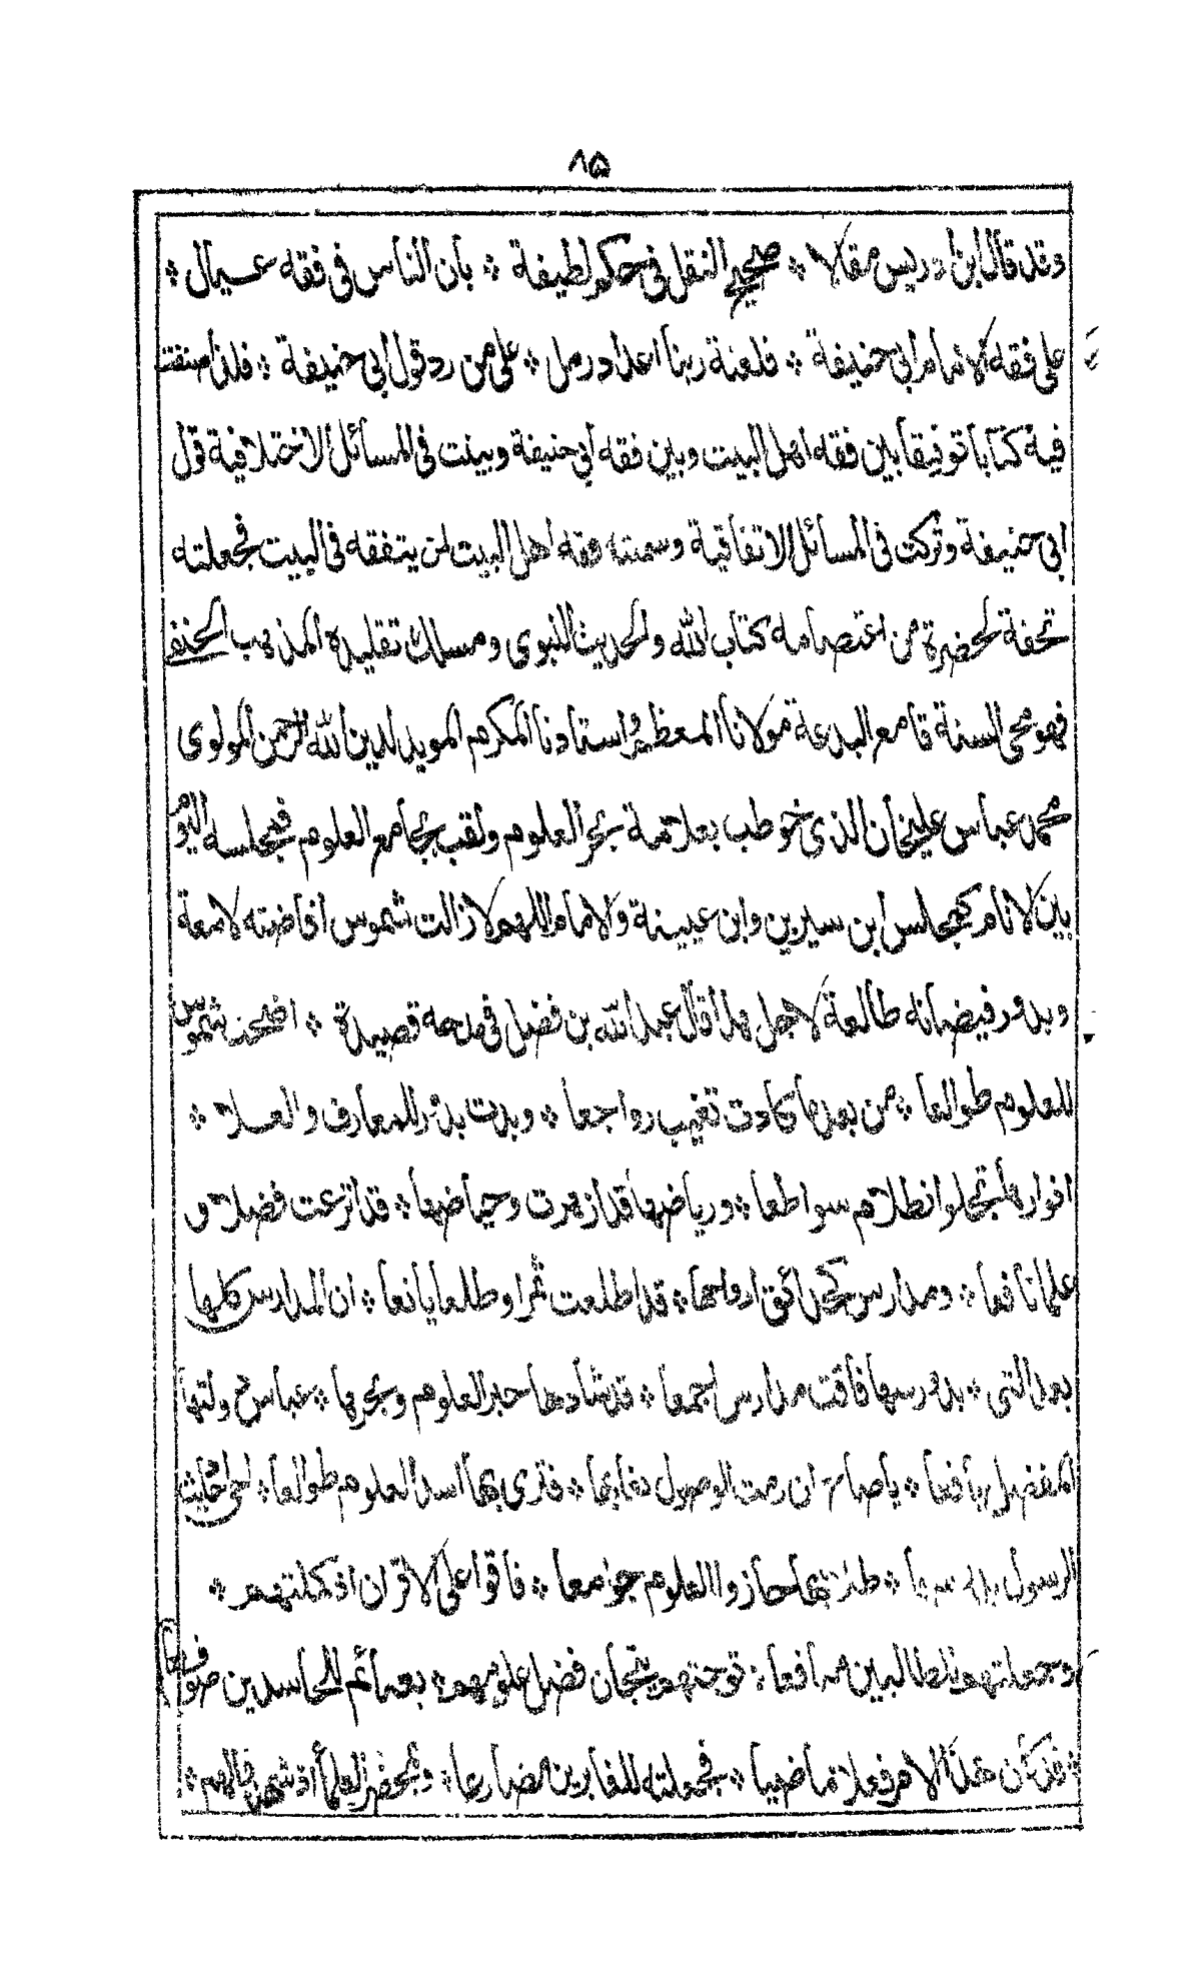 ٨٥
وقد قال ابن ادريس مقالا * صحيح النقل في حكم لطيفة * بان الناس في فقه عيال *
على فقه الامام ابي حنيفة * فلعنة ربنا اعداد رمل * على من رد قول ابي حنيفة * فلذا صنفت
فيه كتابا توفيقا بين فقه اهل البيت وبين فقه ابي حنيفة وبينت في المسائل الاختلافية قول
ابي حنيفة وتركت في المسائل الاتفاقية وسميته فقه اهل البيت لمن يتفقه في البيت فجعلته
تحفة لحضرة من اعتصامه كتاب الله والحديث النبوي ومسلك تقليده المذهب الحنفي
فهو محي السنة قامع البدعة مولانا المعظم واستاذنا المكرم المويد لدين الله الرحمن المولوى
محمد عباس عليخان الذي خوطب بعلامة بحر العلوم ولقب بجامع العلوم فمجلسه اليوم
بين الانام كمجلس ابن سيرين وابن عيينة والامام اللهم لا زالت شموس افاضته لامعة
وبدور فيضانه طالعة لاجل هذا قال عبد الله بن فضل في مدحه قصيدة * اضحت شموس
للعلوم طوالعا * من بعد ما كادت تغيب رواجعا * وبدت بدور للمعارف والعلا *
انوارها تجلو الظلام سواطعا * ورياضها قد ازهرت وحياضها * قد اترعت فضلا و
علما نافعا * ومدارس كحدائق ارواحها * قد اطلعت ثمرا وطلعا يانعا * ان المدارس كلها
بعد التي * بدروسها فاقت مدارس اجمعا * قد شادها حبر العلوم وبحرها * عباس
المفضل يافعا * يا صاح ان رمت الوصول * فترى بها اسد العلوم طوالعا *
الرسول * حازوا العلوم جوامعا * فاقوا على الاقران اذ كملتهم *
وجعلتهم للطالبين * توجتهم بتيجان فضل علومهم * بعمائم للحاسدين
* قد كان هذا الامر فعلا ماضيا * فجعلته للغابرين مضارعا * العلماء اذ شهدت لهم *